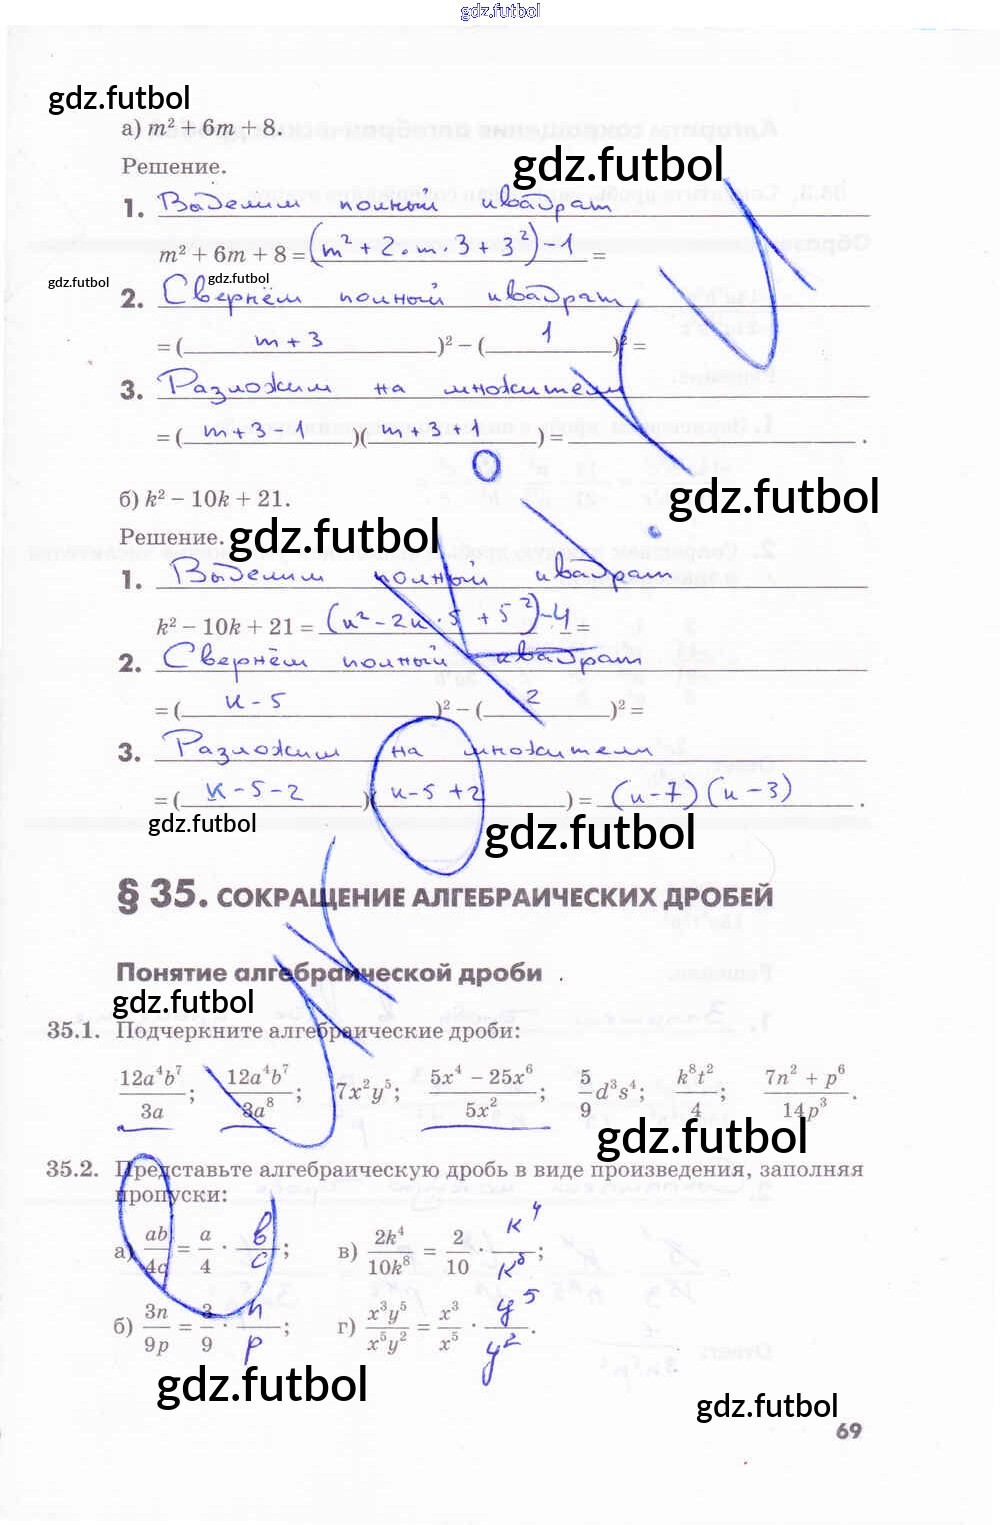 gdz.futbol
gdz.futbol
а) m² + 6m + 8.
gdz.futbol
Решение.
1. Выделим полный квадрат
m² + 6m + 8 = (m² + 2·m·3 + 3²) - 1 =
gdz.futbol
gdz.futbol
2. Свернём полный квадрат
= ( m + 3 )² – ( 1 )² =
3. Разложим на множители
= ( m + 3 - 1 )( m + 3 + 1 ) = .
б) k² – 10k + 21.
gdz.futbol
Решение.
gdz.futbol
1. Выделим полный квадрат
k² – 10k + 21 = (k² - 2k·5 + 5²) - 4 =
2. Свернём полный квадрат
= ( k - 5 )² – ( 2 )² =
3. Разложим на множители
= ( k - 5 - 2 )( k - 5 + 2 ) = (k - 7)(k - 3) .
gdz.futbol
gdz.futbol
§ 35. СОКРАЩЕНИЕ АЛГЕБРАИЧЕСКИХ ДРОБЕЙ
Понятие алгебраической дроби
gdz.futbol
35.1. Подчеркните алгебраические дроби:
12a⁴b⁷/3a; 12a⁴b⁷/3a⁸; 7x²y⁵; (5x⁴ − 25x⁶)/5x²; 5/9 d³s⁴; k⁸t²/4; (7n² + p⁶)/14p³.
gdz.futbol
35.2. Представьте алгебраическую дробь в виде произведения, заполняя
пропуски:
а) ab/4c = a/4 · b/c; в) 2k⁴/10k⁸ = 2/10 · k⁴/k⁸;
б) 3n/9p = 3/9 · n/p; г) x³y⁵/x⁵y² = x³/x⁵ · y⁵/y².
gdz.futbol
gdz.futbol
69
уроки.ги